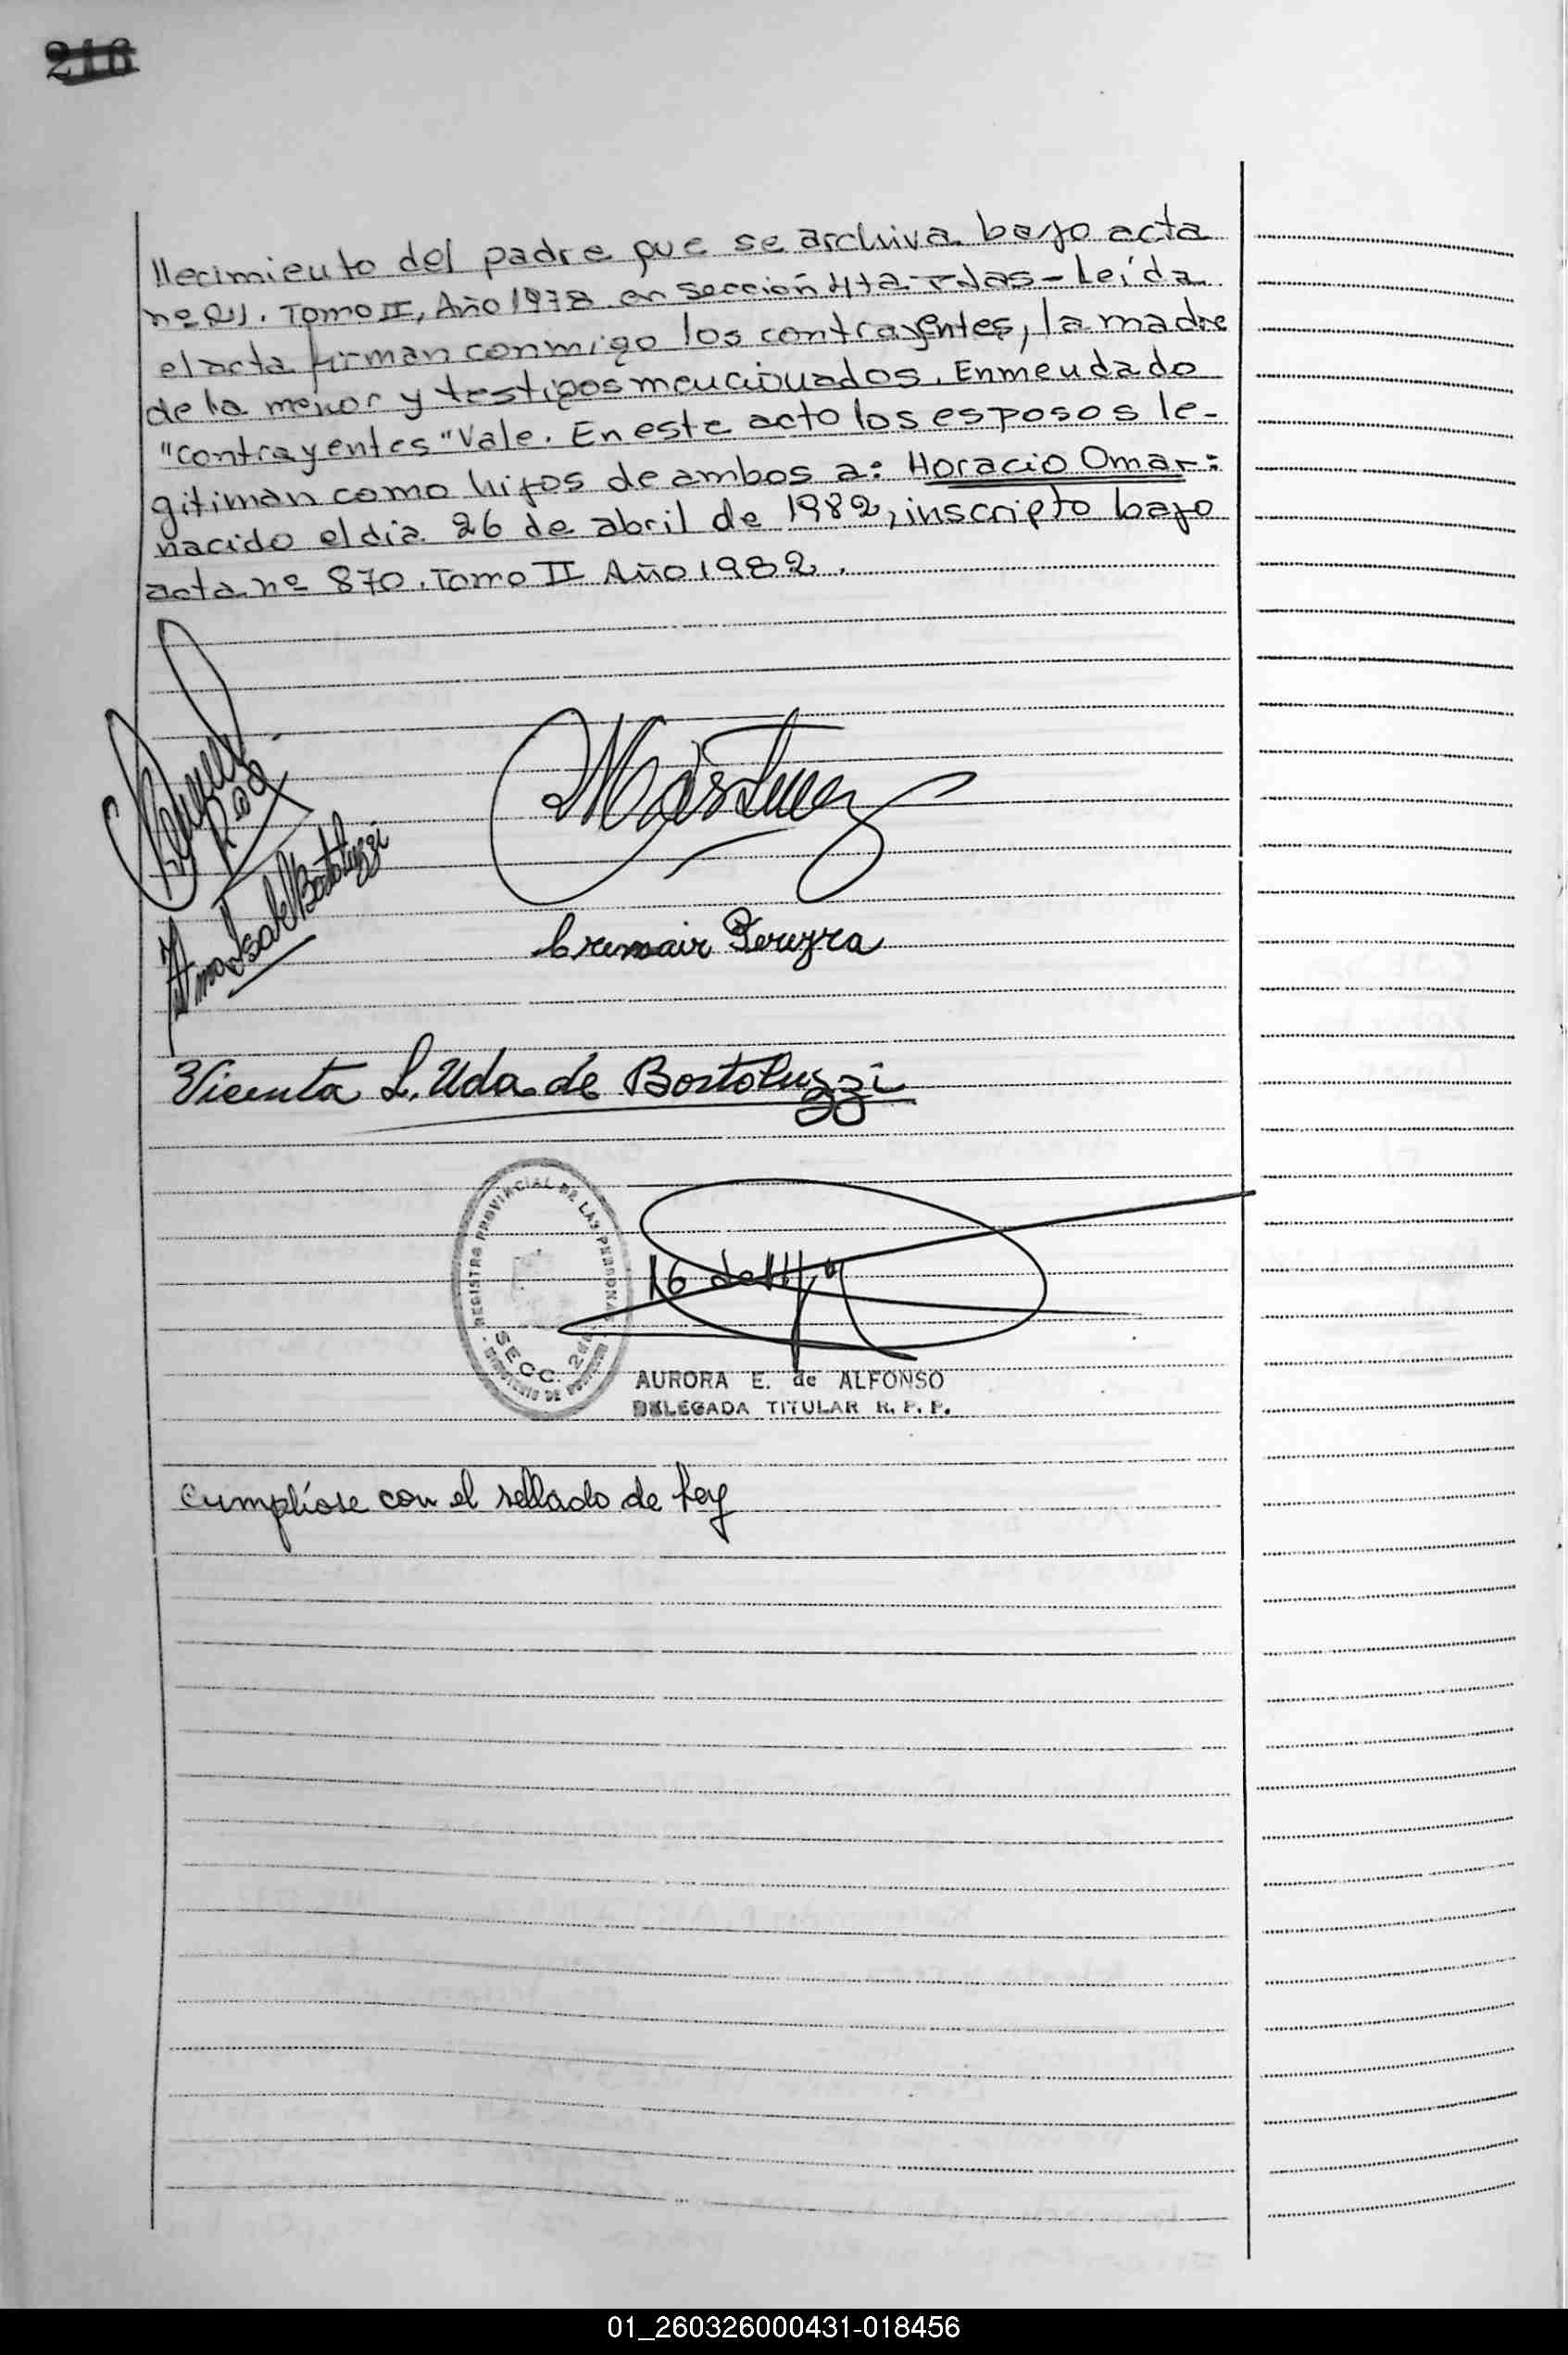 216
llecimiento del padre que se archiva bajo acta
nº 21. Tomo II, Año 1978 en sección 4ta Pdas - Leída
el acta firman conmigo los contrayentes, la madre
de la menor y testigos mencionados. Enmendado
"contrayentes" Vale. En este acto los esposos le-
gitiman como hijos de ambos a: Horacio Omar:
nacido el dia 26 de abril de 1982, inscripto bajo
acta nº 870. Tomo II Año 1982.
Martinez
Ana Isabel Bortoluzzi
Crimair Pereyra
Vicenta L. Vda. de Bortoluzzi
REGISTRO PROVINCIAL DE LAS PERSONAS
SECC.
16 de
AURORA E. de ALFONSO
DELEGADA TITULAR R. P. P.
Cumplíose con el sellado de Ley
01_260326000431-018456